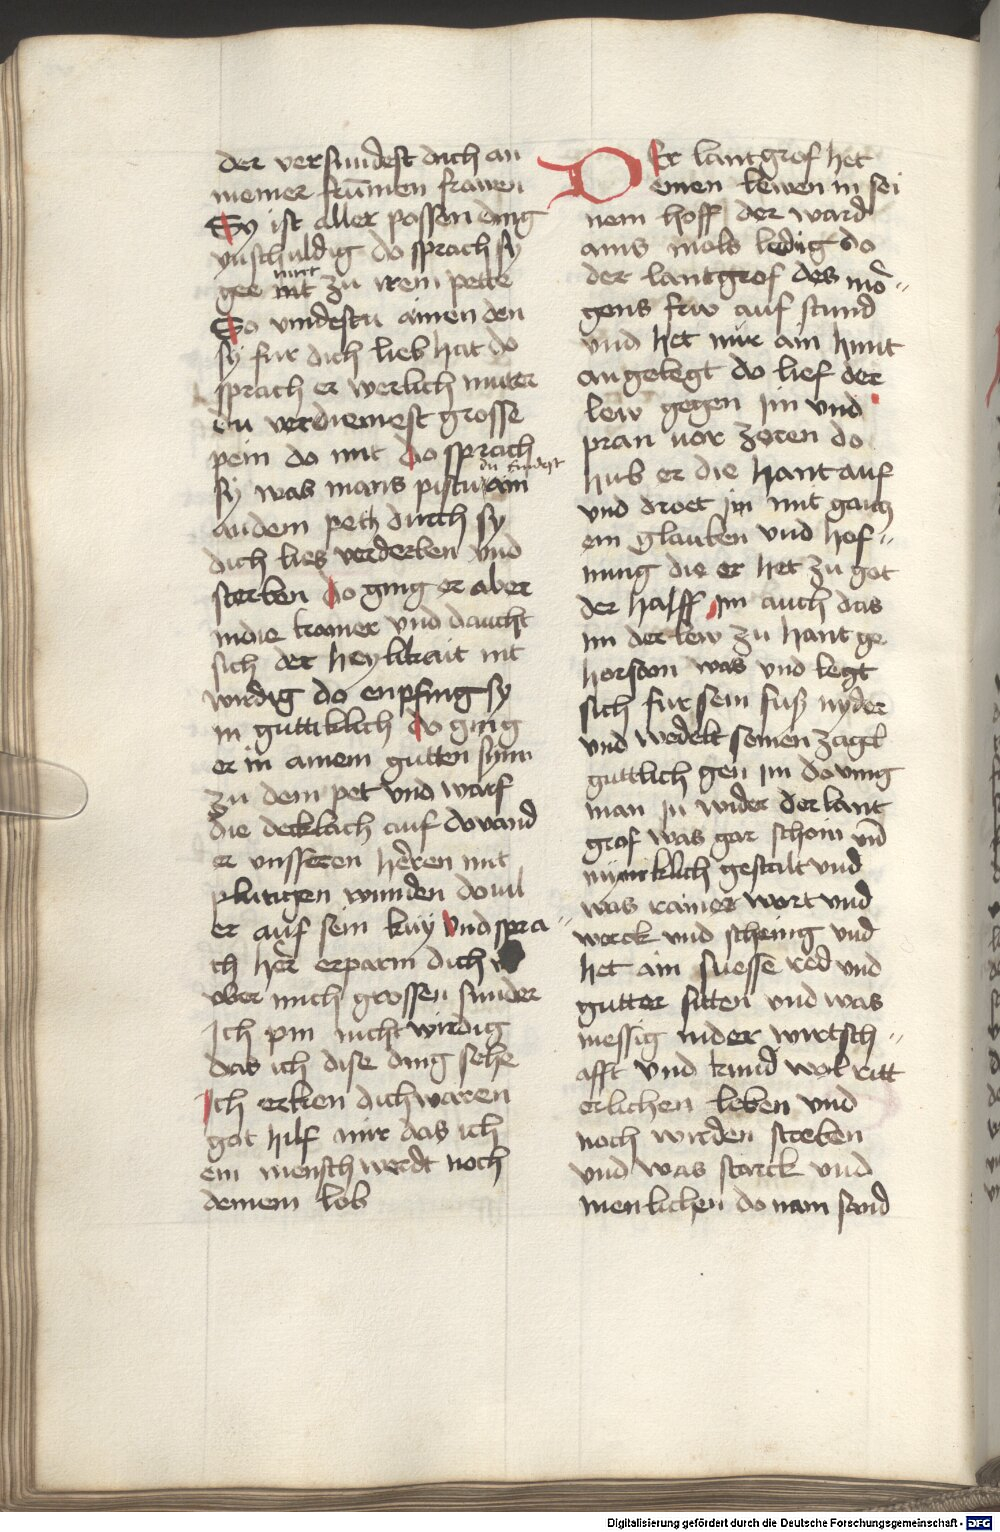 der versundest dich an
meiner frūmen frawen
Sy ist aller possen ding
vnschuldig do sprach sy
nurt
gee nit zu irem pette
So vindestu ainen den
sy fur dich lieb hat do
sprach er werlich muter
du verdienest grosse
pein do mit do sprach
du findest
sy was mans pistu ain
an dem petz durch sy
dich lies verderben vnd
sterben do ging er aber
in die kamer vnd daucht
sich der heylikait nit
wirdig do enpfing sy
in guttiklich do ging
er in ainem gutten synn
zu dem pet vnd warf
die decklach auf do vand
er vnsseren heren mit
plutigen wunden do vil
er auf sein kuy vnd spra
ch her erparm dich
vber mich grossen sunder
Ich pin nicht wirdig
das ich dise ding sehe
Ich erken dich waren
got hilf mir das ich
ein mensch werdt noch
deinem lob
Der lantgrof het
einen lewen in sei
nem hoff der ward
ains mols ledig do
der lantgrof des mo
gens frw auf stund
vnd het nür ain hmit
an gelegt do lief der
lew gegen im vnd
pran vor zoren do
hub er die hant auf
vnd droet im mit gantz
em glauben vnd hof
nung die er het zu got
der halff im auch das
im der lew zu hant ge
horson was vnd legt
sich fur sein fusz nyder
vnd wedelt seinen zagel
guttlich gen im do ving
man in wider der lant
grof was gar schoin vnd
mynnklich gestalt vnd
was rainer wort vnd
werck vnd scheinig vnd
het ain suesse red vnd
gutter sitten vnd was
messig in der wirtsch
afft vnd kund wol ritt
erlichen leben vnd
noch wirden streben
vnd was starck vnd
menlichen do nam sand
Digitalisierung gefördert durch die Deutsche Forschungsgemeinschaft - DFG